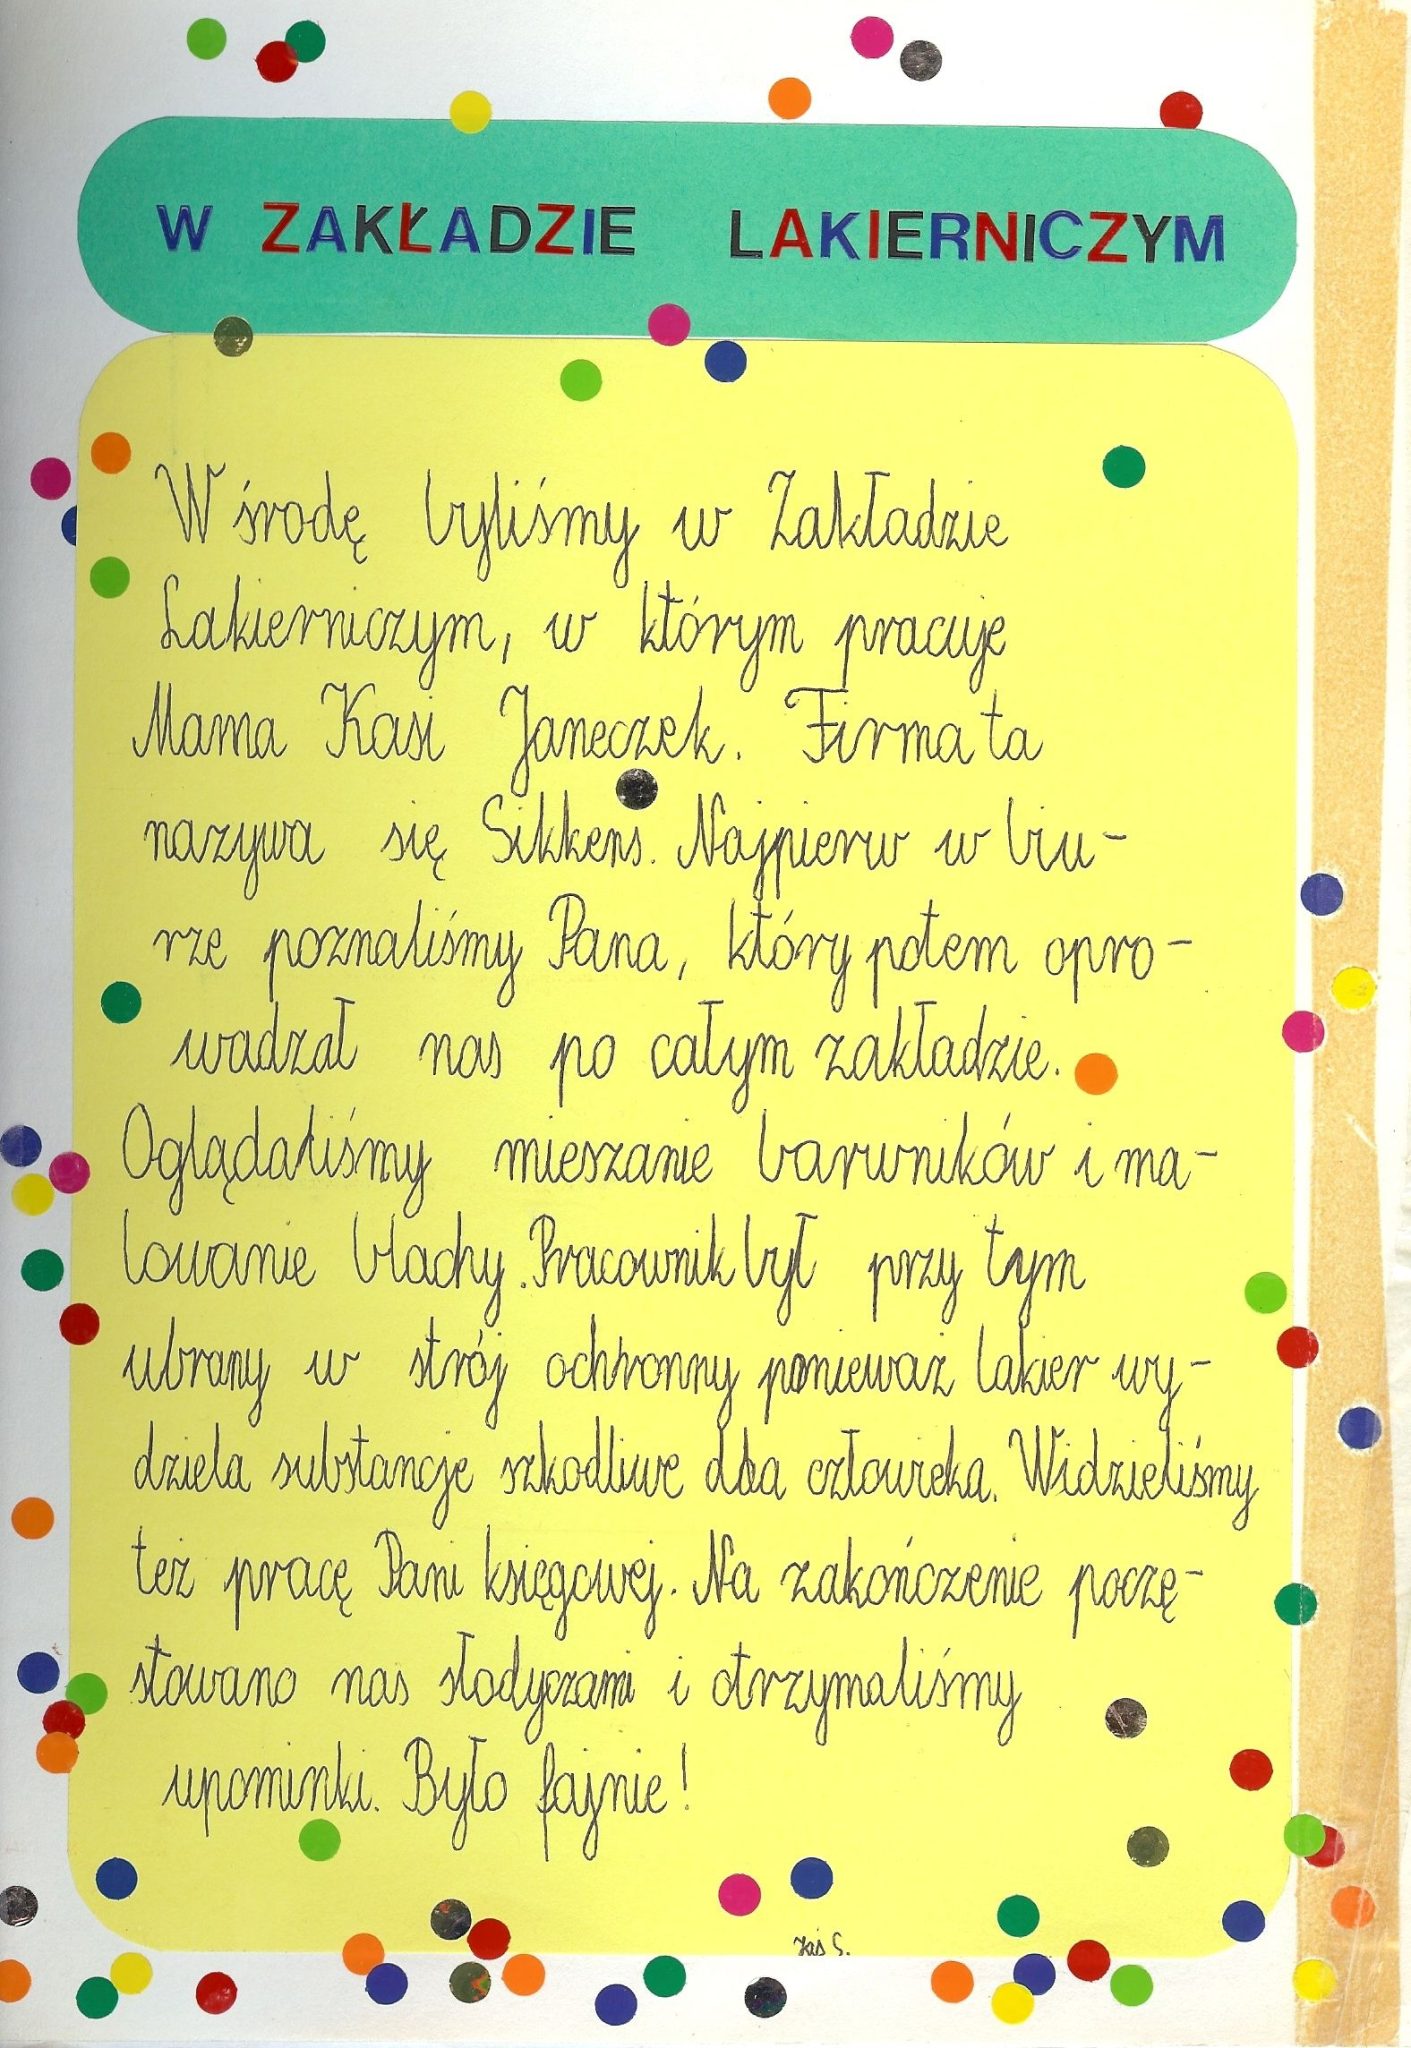 W ZAKŁADZIE LAKIERNICZYM
W środę byliśmy w Zakładzie
Lakierniczym, w którym pracuje
Mama Kasi Janeczek. Firma ta
nazywa się Sikkens. Najpierw w biu-
rze poznaliśmy Pana, który potem opro-
wadzał nas po całym zakładzie.
Oglądaliśmy mieszanie barwników i ma-
lowanie blachy. Pracownik był przy tym
ubrany w strój ochronny ponieważ lakier wy-
dziela substancje szkodliwe dla człowieka. Widzieliśmy
też pracę Pani księgowej. Na zakończenie poczę-
stowano nas słodyczami i otrzymaliśmy
upominki. Było fajnie!
Jaś S.